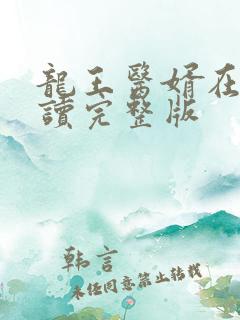 龍王醫婿在
讀完整版
韩言
未经同意禁止转载